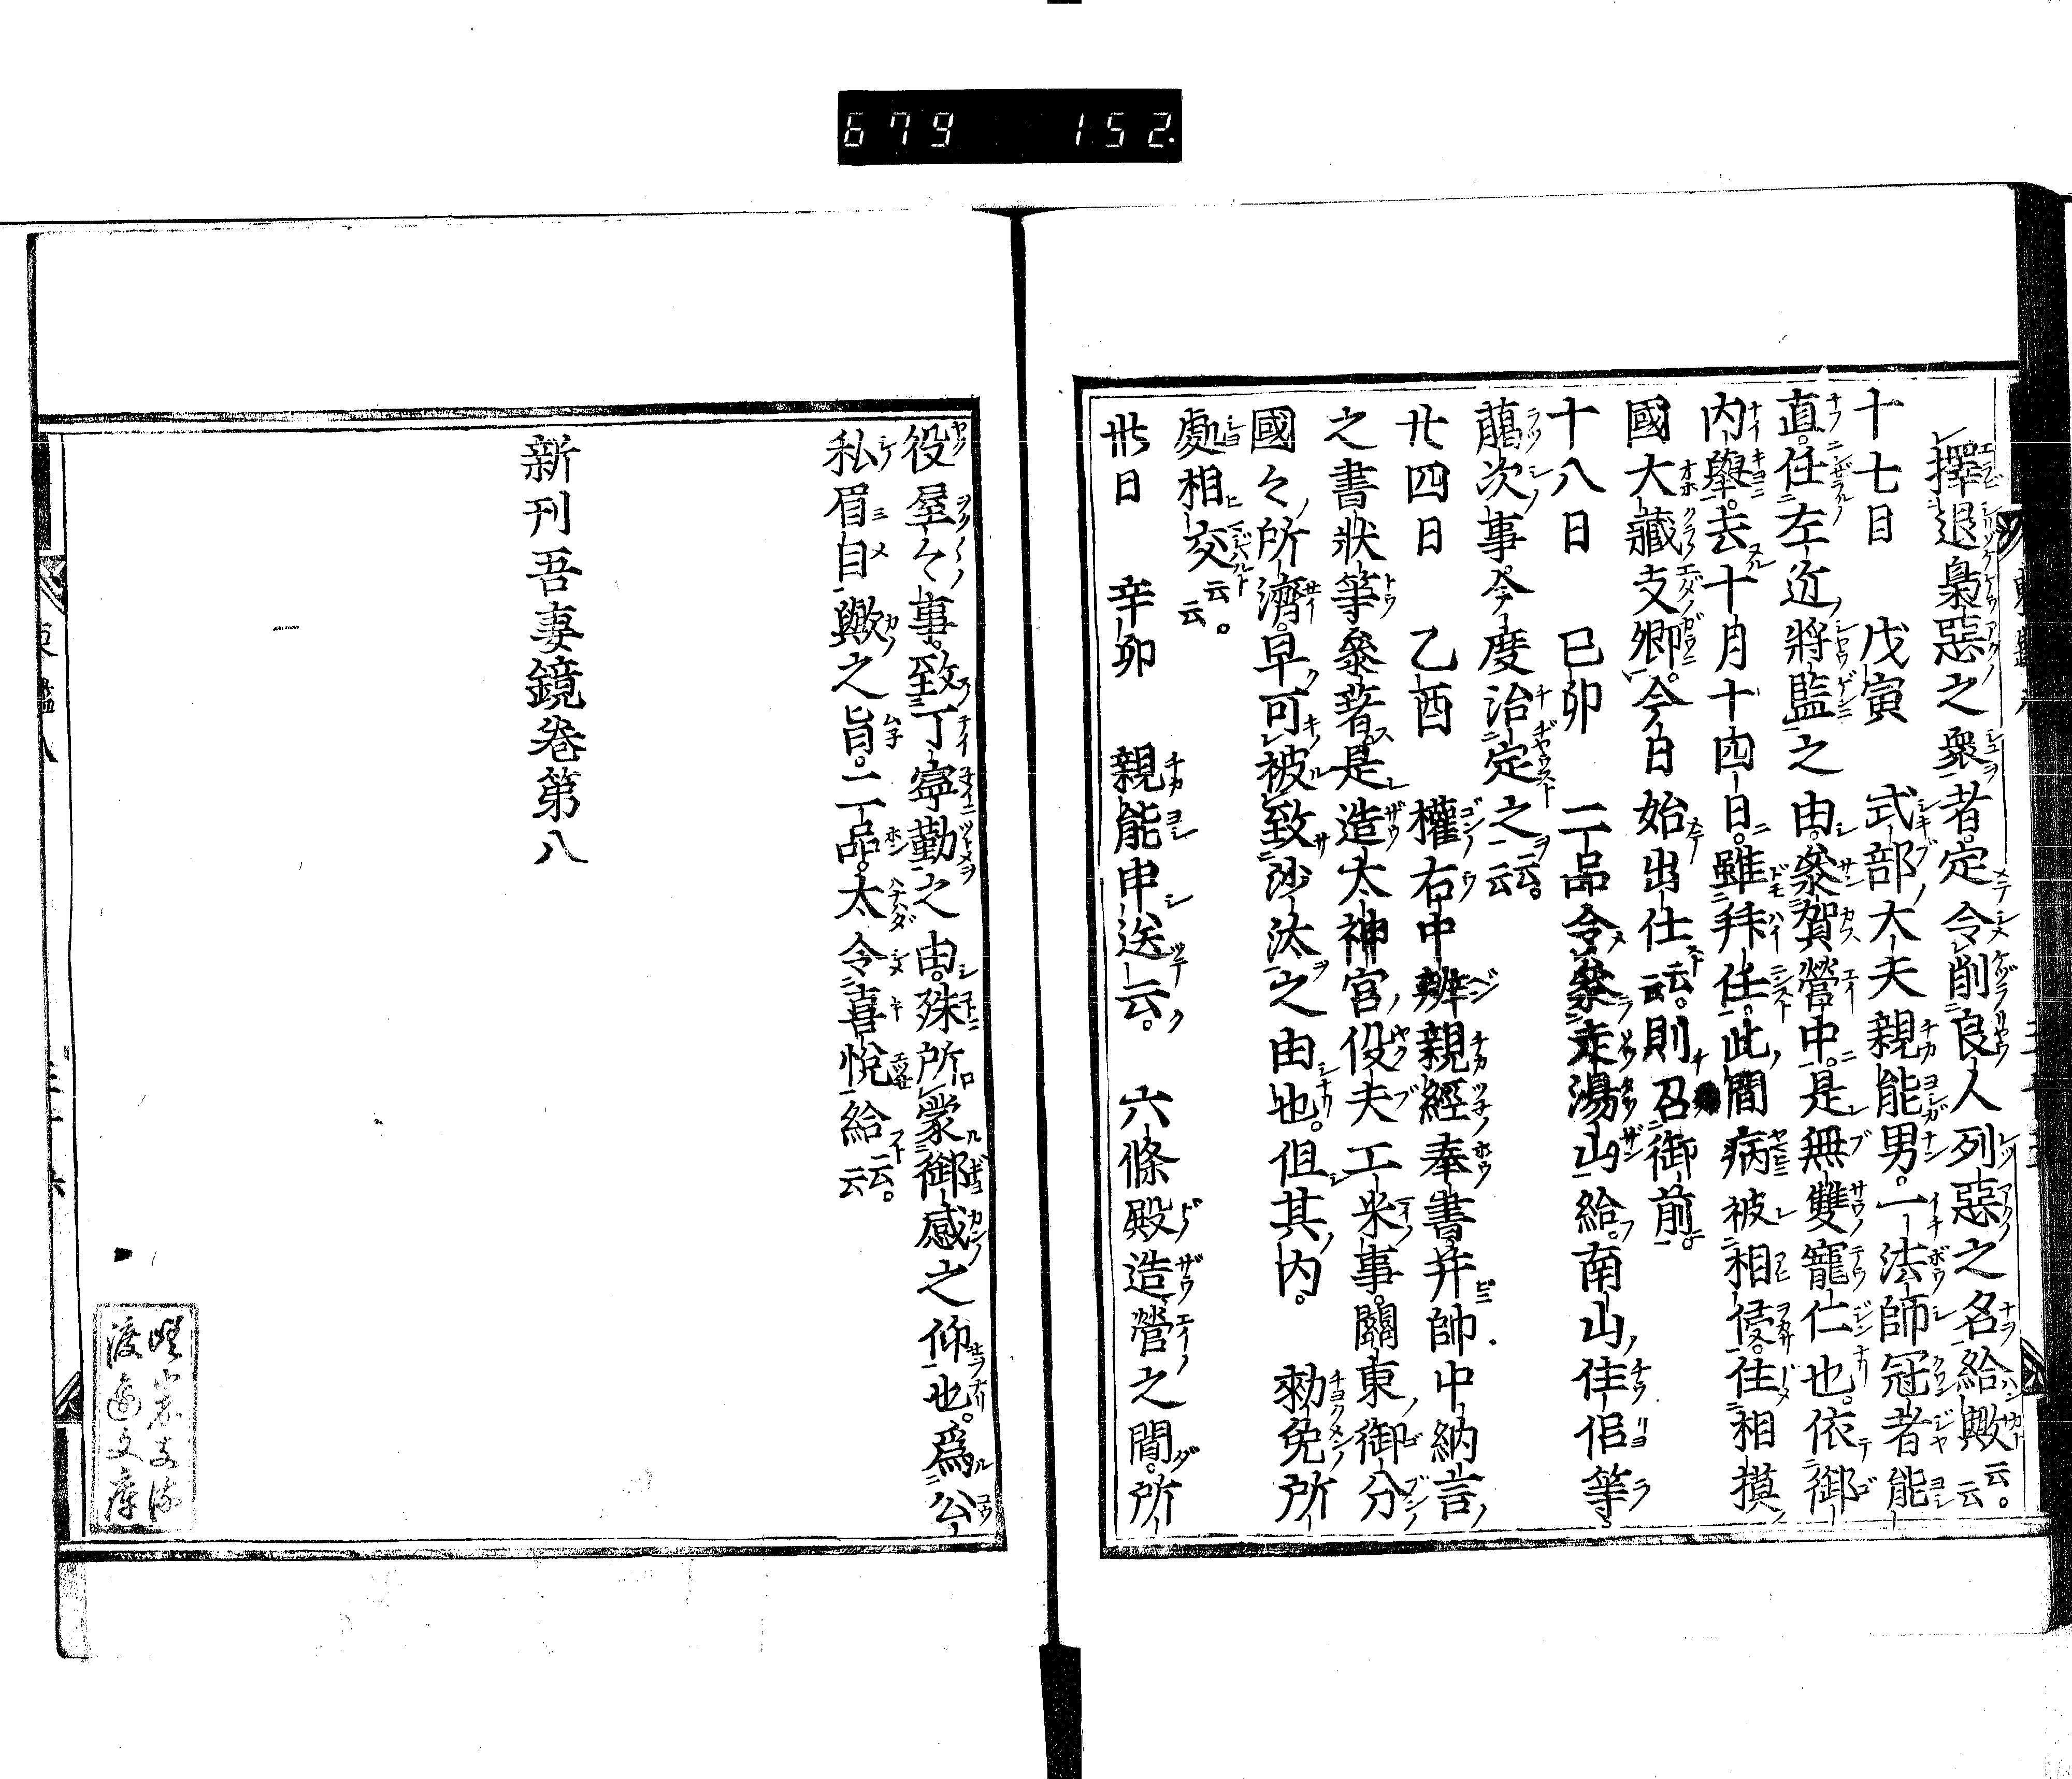 679 152
擇退梟惡之衆者。定令削良人列惡之名給歟云云。
十七日 戊寅 式部大夫親能男。一法師冠者能
直。任左近將監之由。參賀營中。是無雙寵仁也。依御
内擧。去十月十四日。雖拜任。此間病被相侵。住相摸
國大藏支卿。今日始出仕云云。則召御前。
十八日 己卯 二品令參走湯山給。南山住侶等。
﨟次事。今度治定之云云。
廿四日 乙酉 權右中辨親經奉書。并帥中納言
之書狀等參著。是造太神宮役夫工米事。關東御分
國々所濟。早可被致沙汰之由也。但其内。 勅免所
處相交云云。
卅日 辛卯 親能申送云。 六條殿造營之間。所
役屋々事。致丁寧勤之由。殊所蒙御感之仰也。爲公
私眉目歟之旨。二品。太令喜悅給云云。
新刊吾妻鏡卷第八